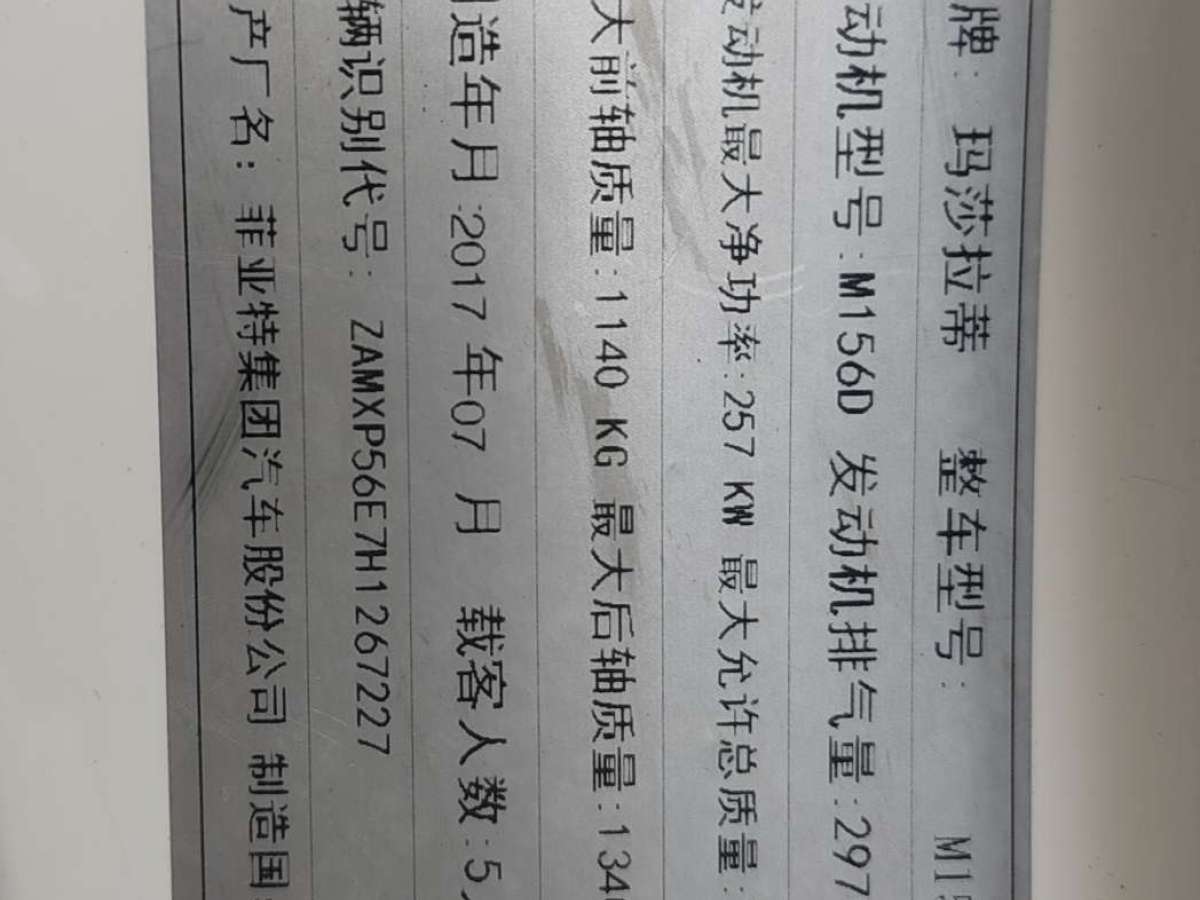 牌: 玛莎拉蒂 整车型号: M15
动机型号:M156D 发动机排气量:297
发动机最大净功率:257 KW 最大允许总质量:
大前轴质量:1140 KG 最大后轴质量:134
造年月:2017 年07 月 载客人数:5
辆识别代号: ZAMXP56E7H1267227
产厂名: 菲亚特集团汽车股份公司 制造国